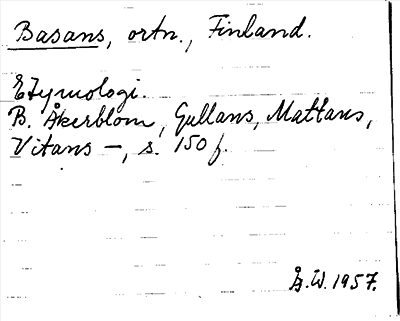 Basans, ortn., Finland.
Etymologi.
B. Åkerblom, Gullans, Mattans,
Vitans —, s. 150 f.
Å.W. 1957.